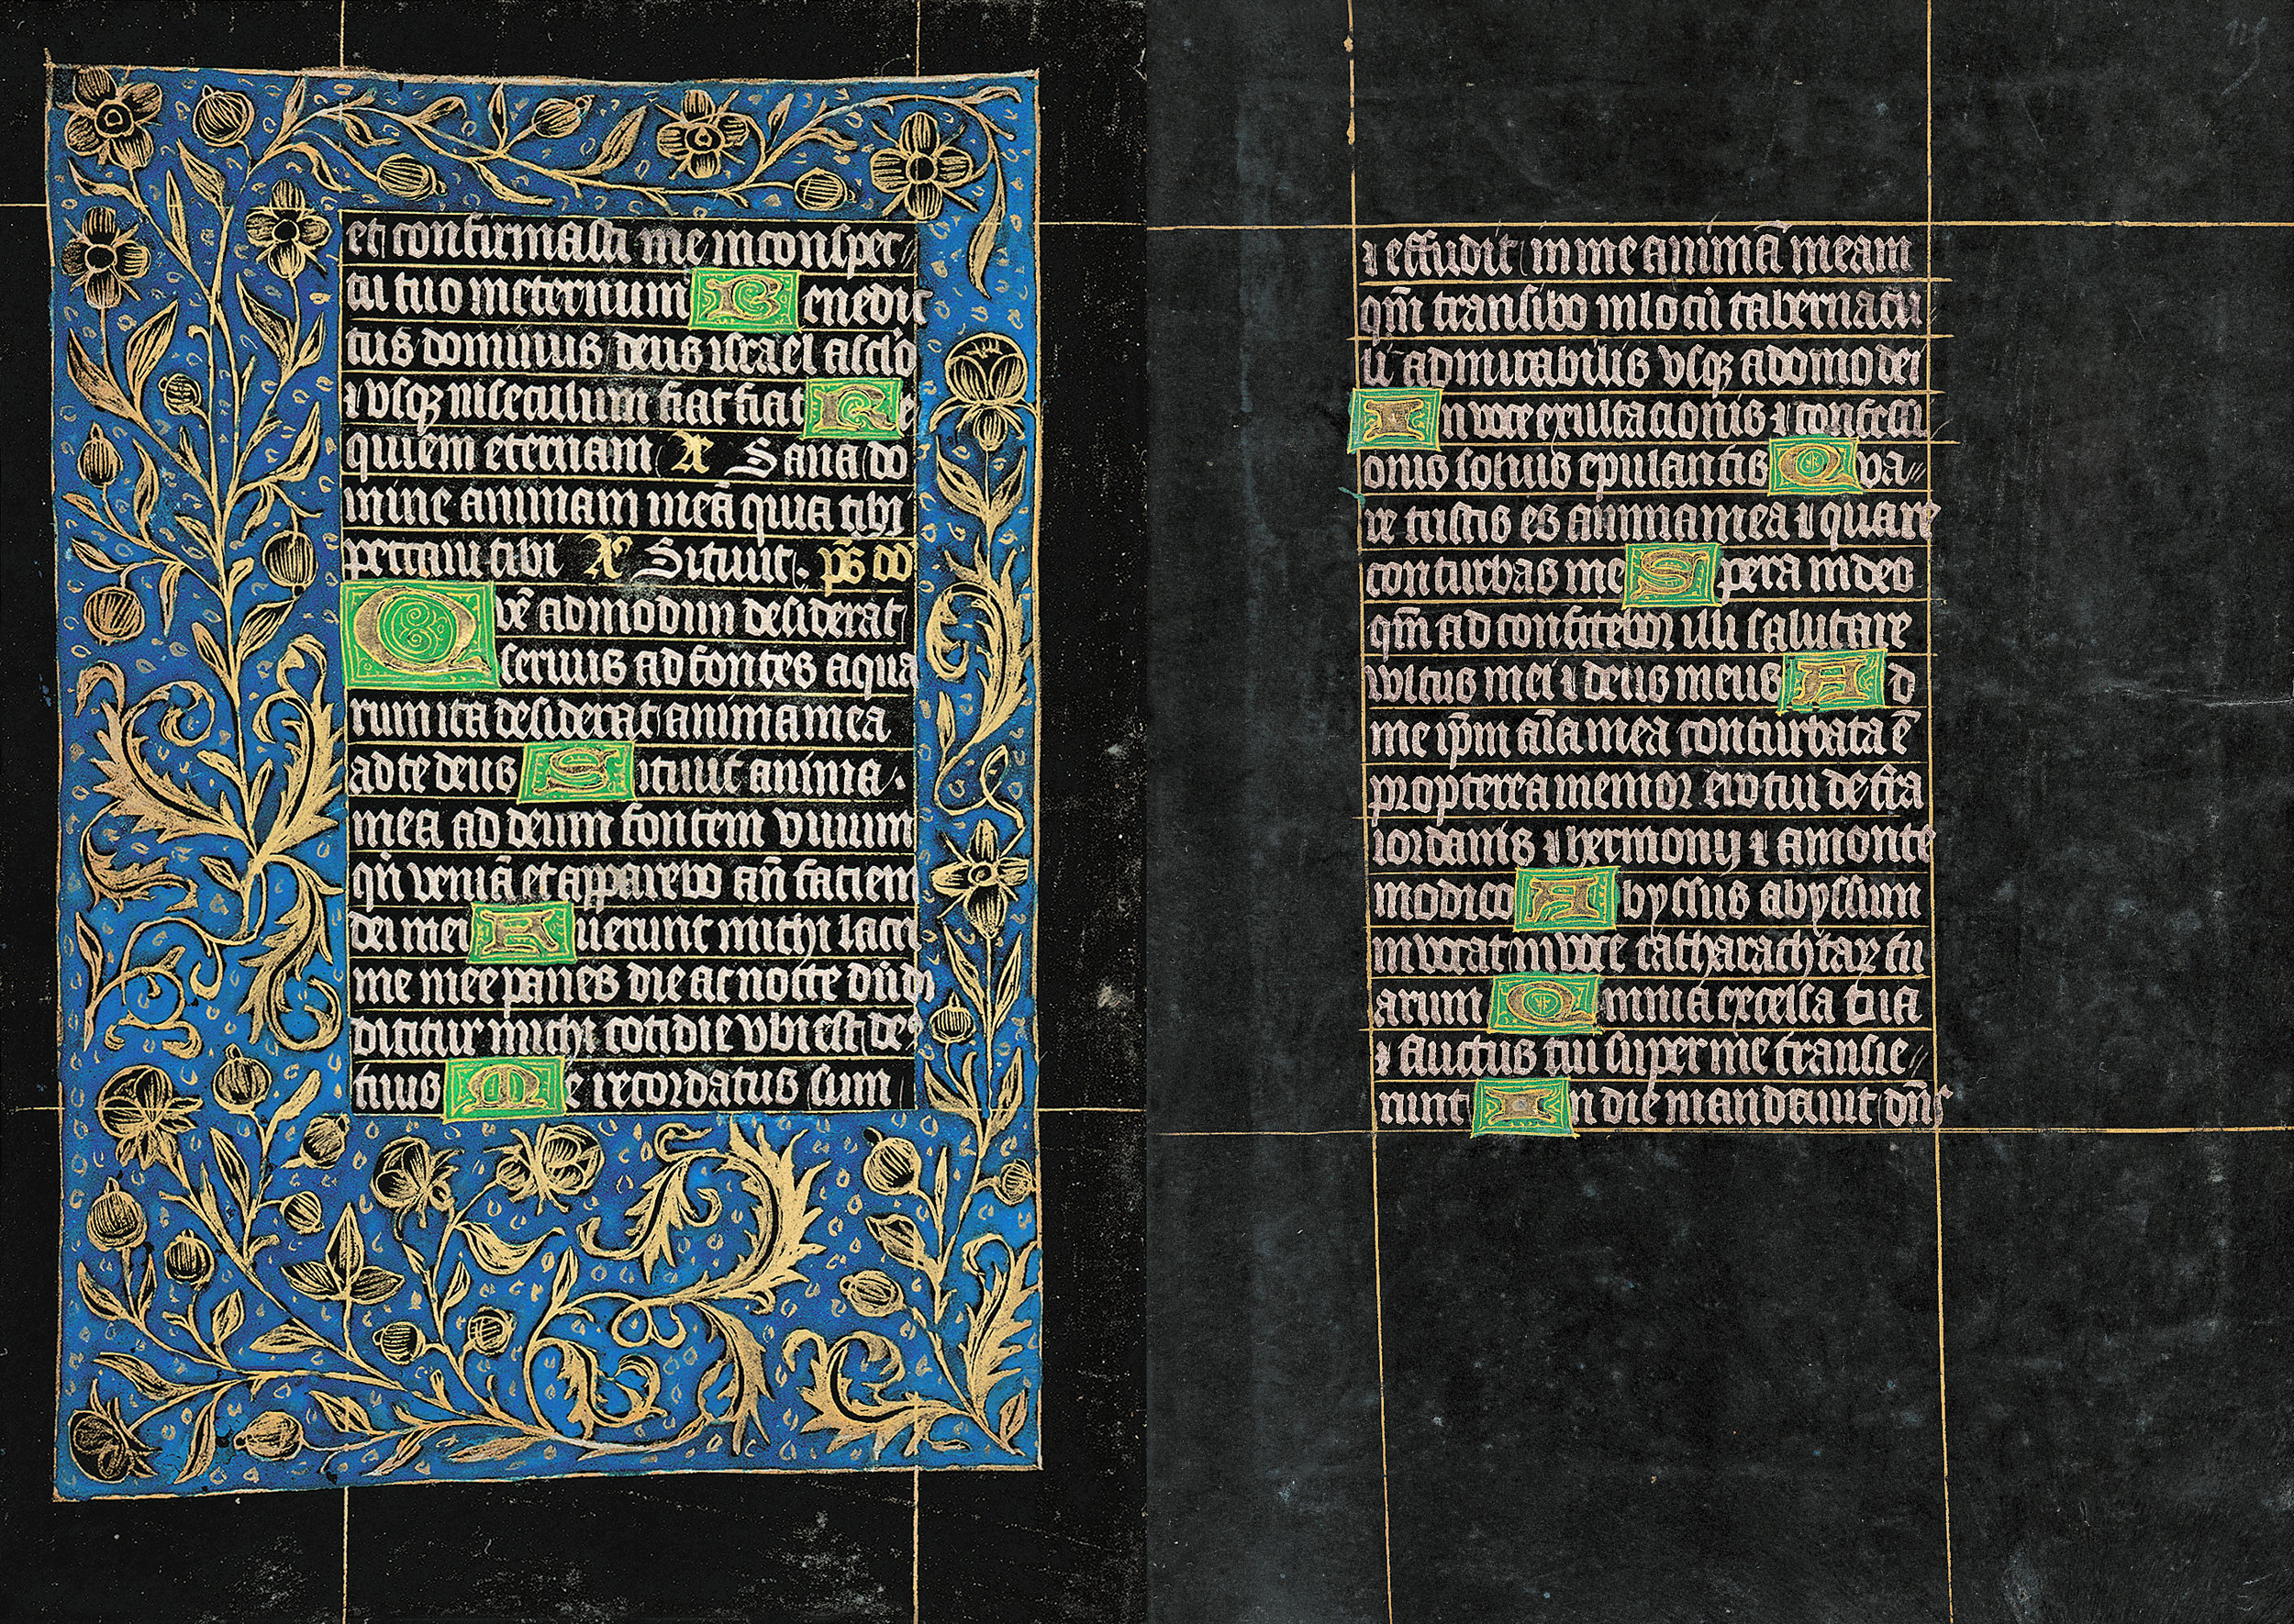 et confirmasti me inconspec//
tu tuo ineternum Benedic
tus dominus deus israel asclo
⁊ vsqz inseculum fiat fiat Re
quiem eternam A Sana do
mine animam meā quia tibi
peccaui tibi A Sitiuit. ps dd
Qvē admodm desiderat
ceruus ad fontes aqua
rum ita desiderat anima mea
ad te deus Sitiuit anima.
mea ad deum fontem viuum
qn̄ veniā et apparebo an̄ faciem
dei mei Fuerunt michi lacri
me mee panes die ac nocte dūdi
dicitur michi cotidie vbi est deꝰ
tuus Me recordatus sum
⁊ effudit in me animā meam
qm̄ transibo inlocū tabernacu
li admirabilis vsqz adomo dei
In voce exultacionis ⁊ confessi
onis sonus epulantis Qva//
re tristis es anima mea ⁊ quare
conturbas me Spera indeo
qm̄ ad confitebor illi salutare
vvltus mei ⁊ deus meus Ad
me ip̄m aīa mea conturbata ē
propterea memor ero tui de tr̄a
iordanis ⁊ hermonij ⁊ amonte
modico Abyssus abyssum
inuocat invoce catharachtarꝝ tu
arum Omnia excelsa tua
⁊ fluctus tui super me transie//
runt In die mandauit dn̄s